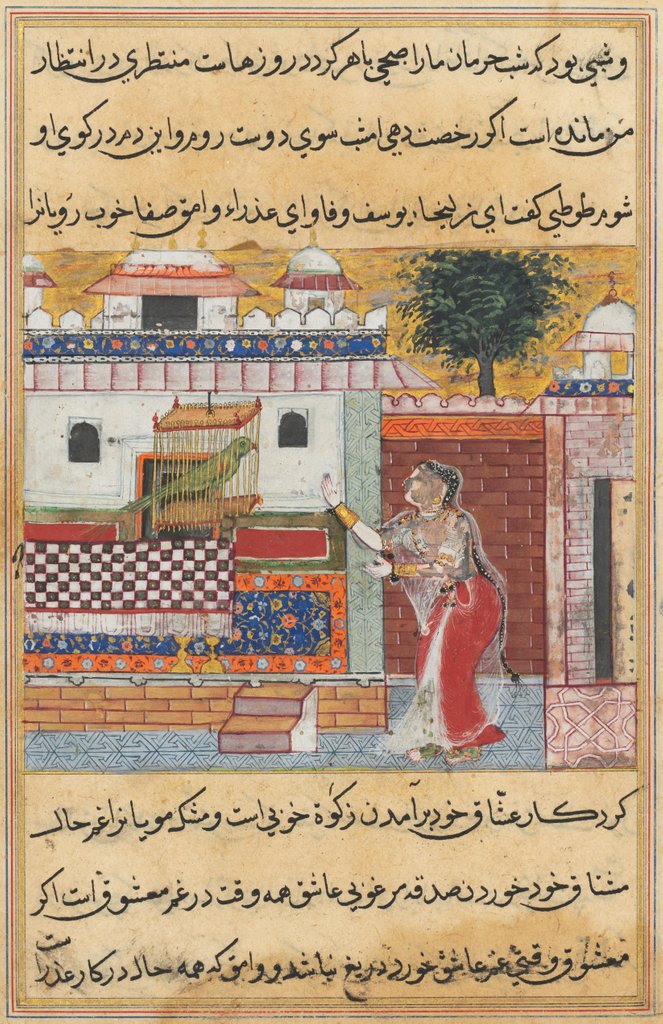 و شبی بود که شب حرمان ما را صبحی باهر کردد روزهاست منتظری در انتظار
من مانده است اکر رخصت دهی امشب سوی دوست روم و این دم در کوی او
شوم طوطی کفت ای زلیخاء یوسف وفا و ای عذراء وامق صفا خوب رویانرا
کرد کار عشاق خود برآمدن زکوة خوبی است و مشک مویانرا غم حال
مشتاق خود خوردن صدقه مرغوبی عاشق همه وقت در غم معشوق است اکر
معشوق وقتی غم عاشق خورد دریغ نباشد و وامق که همه حال در کار عذراست